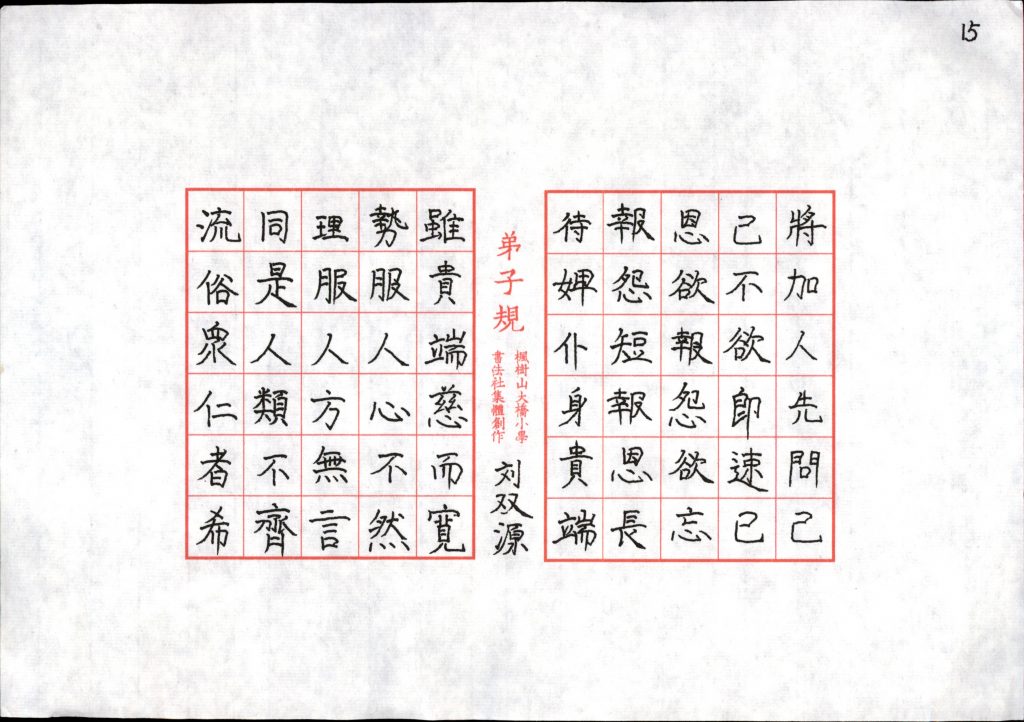 15
將加人先問己
己不欲即速已
恩欲報怨欲忘
報怨短報恩長
待婢仆身貴端
弟子規
楓樹山大橋小學
書法社集體創作
刘双源
雖貴端慈而寬
勢服人心不然
理服人方無言
同是人類不齊
流俗衆仁者希